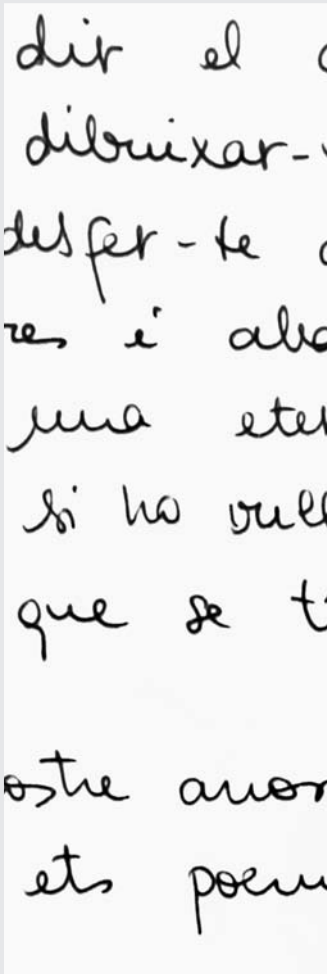 dir el
dibuixar-
desfer-te
res i
una eter
si ho vull
que se t
ostre amor
ets poem